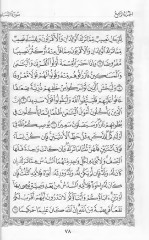 الجزء الرابع سورة النساء
للرجال نصيب مما ترك الوالدان والأقربون وللنساء نصيب
مما ترك الوالدان والأقربون مما قل منه أو كثر نصيبا
مفروضا ٧ وإذا حضر القسمة أولوا القربى واليتامى
والمساكين فارزقوهم منه وقولوا لهم قولا معروفا ٨
وليخش الذين لو تركوا من خلفهم ذرية ضعافا خافوا
عليهم فليتقوا الله وليقولوا قولا سديدا ٩ إن الذين
يأكلون أموال اليتامى ظلما إنما يأكلون في بطونهم نارا
وسيصلون سعيرا ١٠ يوصيكم الله في أولادكم للذكر
مثل حظ الأنثيين فإن كن نساء فوق اثنتين فلهن ثلثا
ما ترك وإن كانت واحدة فلها النصف ولأبويه لكل واحد
منهما السدس مما ترك إن كان له ولد فإن لم يكن له ولد
وورثه أبواه فلأمه الثلث فإن كان له إخوة فلأمه السدس
من بعد وصية يوصي بها أو دين آباؤكم وأبناؤكم لا تدرون أيهم أقرب لكم
نفعا فريضة من الله إن الله كان عليما حكيما ١١
٧٨